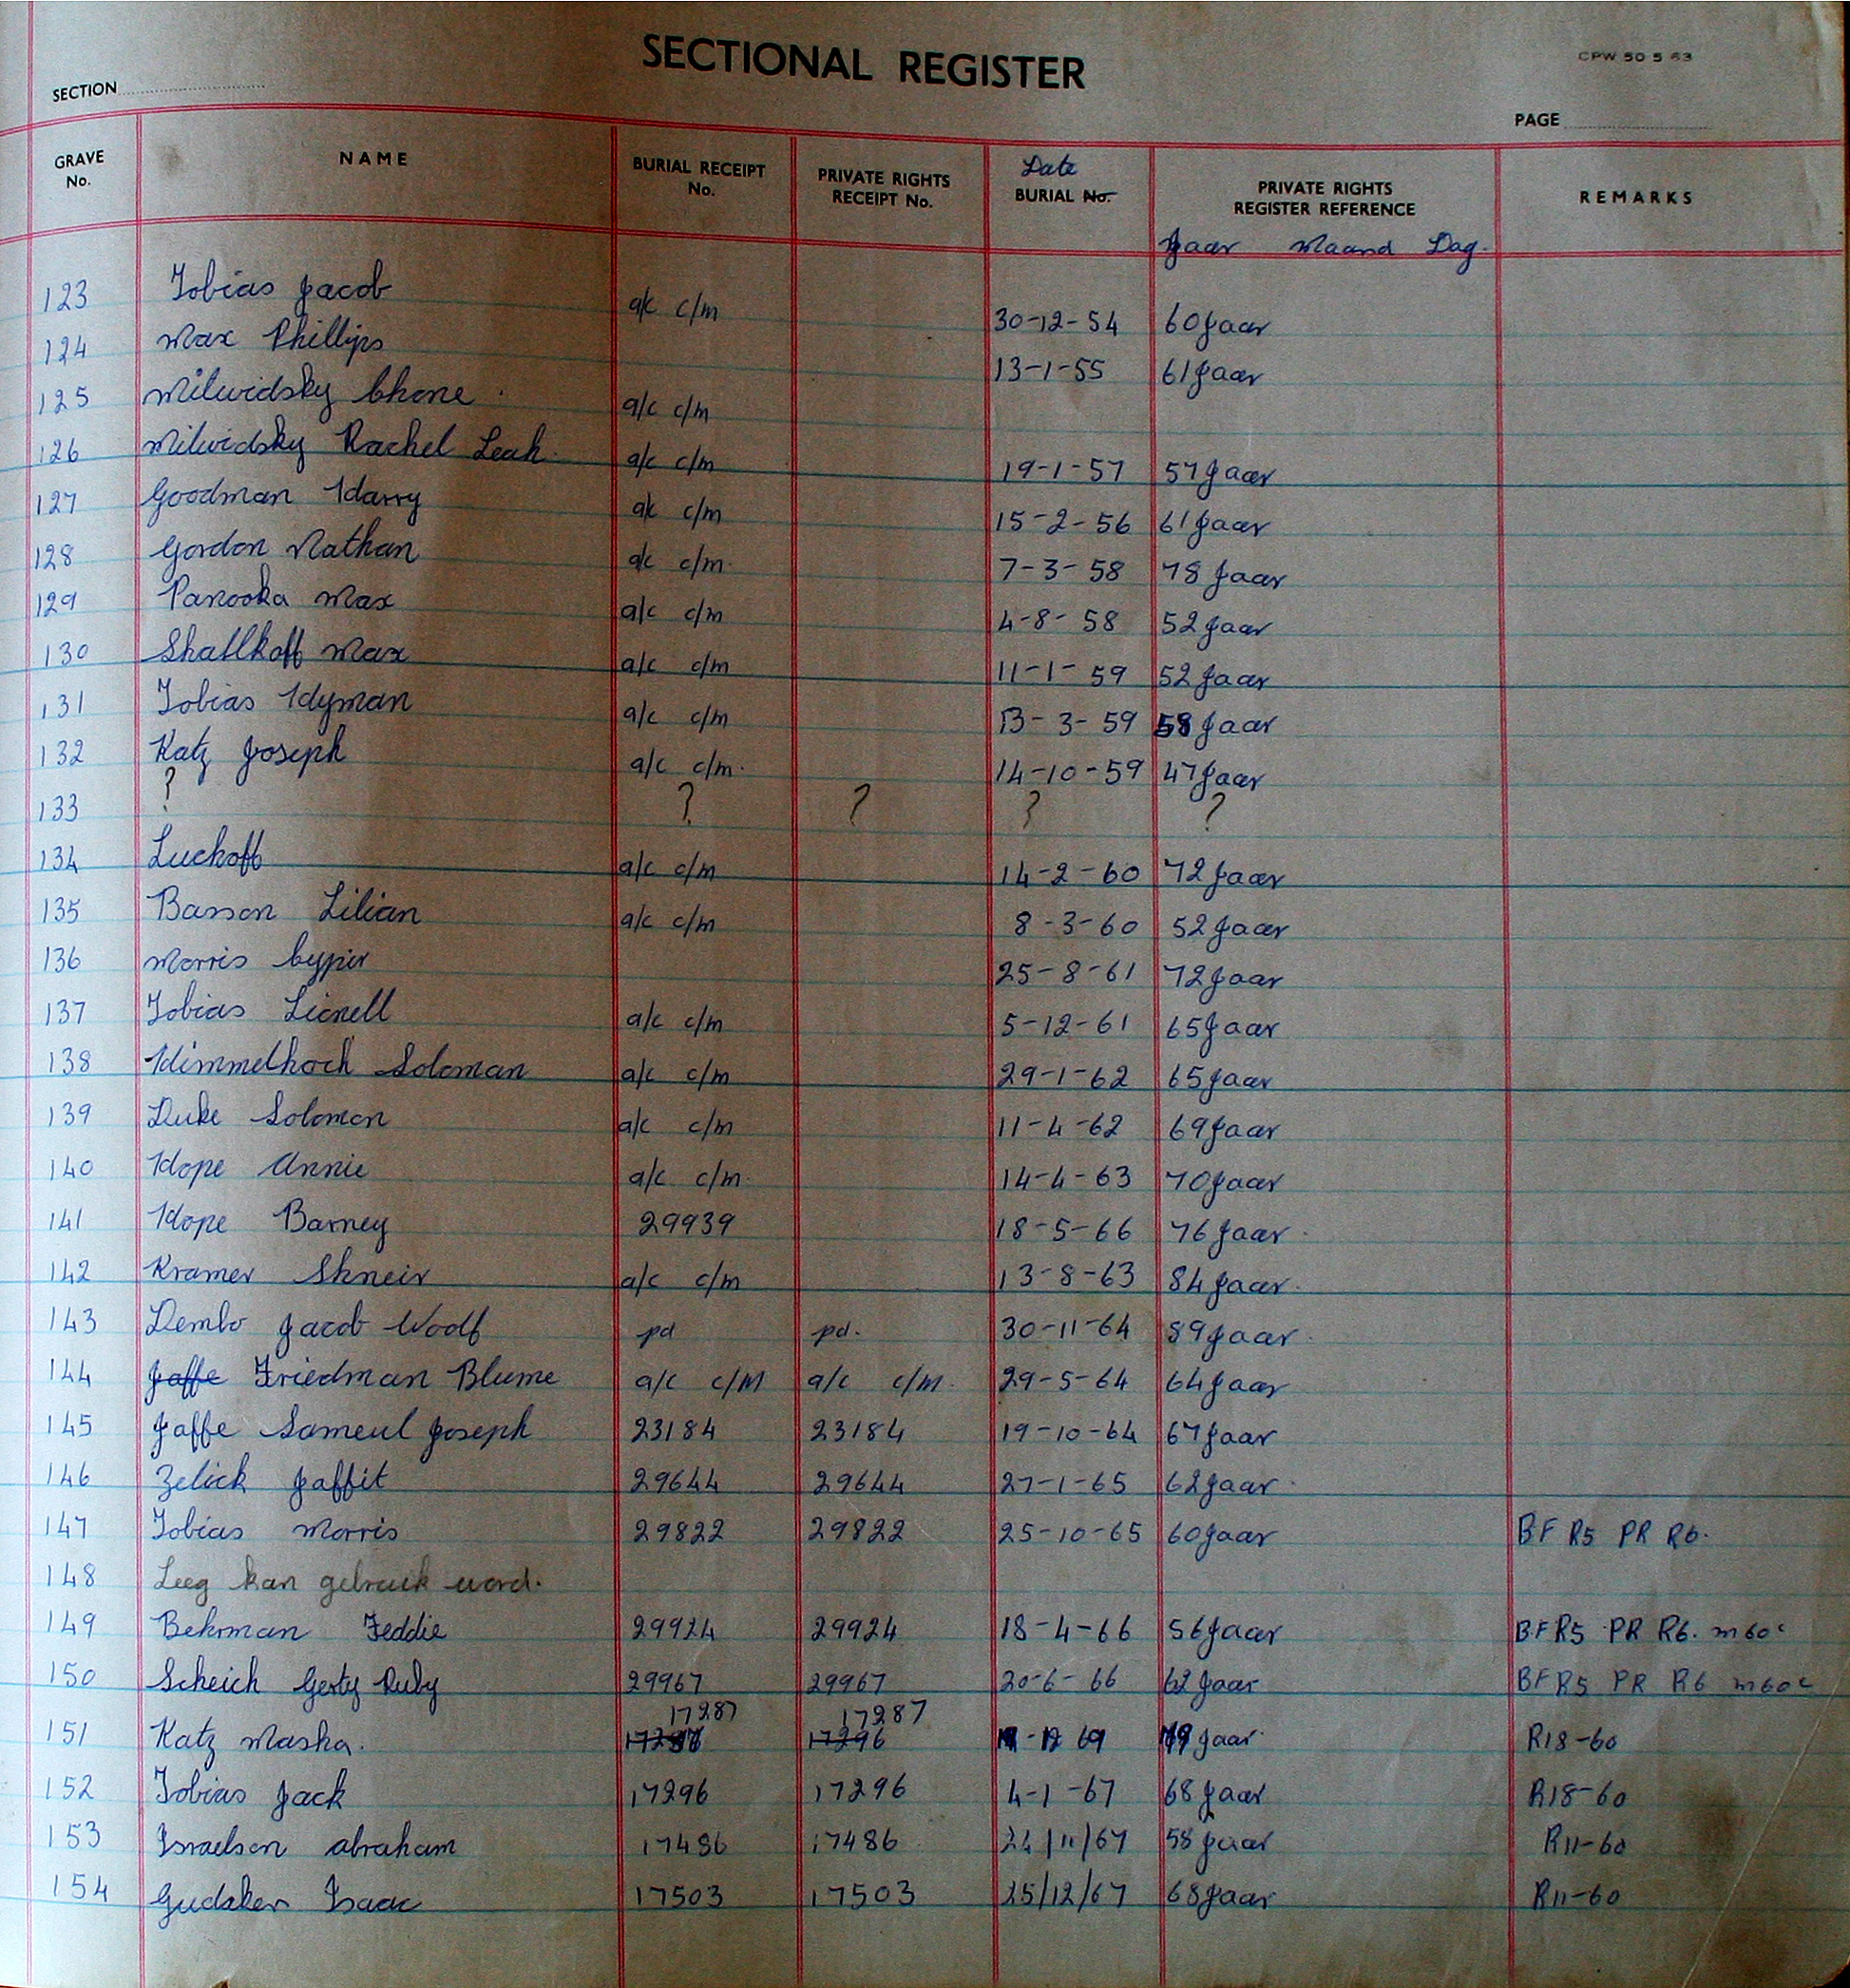 SECTIONAL REGISTER
CPW 50 5 63
SECTION
PAGE
GRAVE No. NAME BURIAL RECEIPT No. PRIVATE RIGHTS RECEIPT No. Date BURIAL No. PRIVATE RIGHTS REGISTER REFERENCE REMARKS
Jaar Maand Dag.
123 Tobias Jacob a/c c/m 30-12-54 60 Jaar
124 Max Phillips 13-1-55 61 Jaar
125 Milwidsky Chone a/c c/m
126 Milwidsky Rachel Leah a/c c/m 19-1-57 57 Jaar
127 Goodman Harry a/c c/m 15-2-56 61 Jaar
128 Gordon Nathan a/c c/m. 7-3-58 78 Jaar
129 Panooka Max a/c c/m 4-8-58 52 Jaar
130 Shallkoff Max a/c c/m 11-1-59 52 Jaar
131 Tobias Hyman a/c c/m 13-3-59 58 Jaar
132 Katz Joseph a/c c/m. 14-10-59 47 Jaar
133 ? ? ? ? ?
134 Luckoff a/c c/m 14-2-60 72 Jaar
135 Basson Lilian a/c c/m 8-3-60 52 Jaar
136 Morris Cypir 25-8-61 72 Jaar
137 Tobias Lionell a/c c/m 5-12-61 65 Jaar
138 Himmelhoch Soloman a/c c/m 29-1-62 65 Jaar
139 Duke Solomon a/c c/m 11-4-62 69 Jaar
140 Hope Annie a/c c/m. 14-4-63 70 Jaar
141 Hope Barney 29939 18-5-66 76 Jaar
142 Kramer Shneir a/c c/m 13-8-63 84 Jaar.
143 Dembo Jacob Woolf pd pd. 30-11-64 89 Jaar.
144 Jaffe Friedman Blume a/c c/M a/c c/M. 29-5-64 64 Jaar
145 Jaffe Sameul Joseph 23184 23184 19-10-64 67 Jaar
146 Zelick Jaffit 29644 29644 27-1-65 62 Jaar
147 Tobias Morris 29822 29822 25-10-65 60 Jaar BF R5 PR R6.
148 Leeg kan gebruik word.
149 Bekrman Feddie 29924 29924 18-4-66 56 Jaar BF R5 PR R6. m60c
150 Scheich Gerty Ruby 29967 29967 20-6-66 62 Jaar BF R5 PR R6 m60c
17287 17287
151 Katz Masha. 17296 12 69 79 Jaar R18-60
152 Tobias Jack 17296 17296 4-1-67 68 Jaar R18-60
153 Israelson abraham 17486 17486 24/11/67 58 Jaar R11-60
154 Gudsken Isaac 17503 17503 25/12/67 68 Jaar R11-60